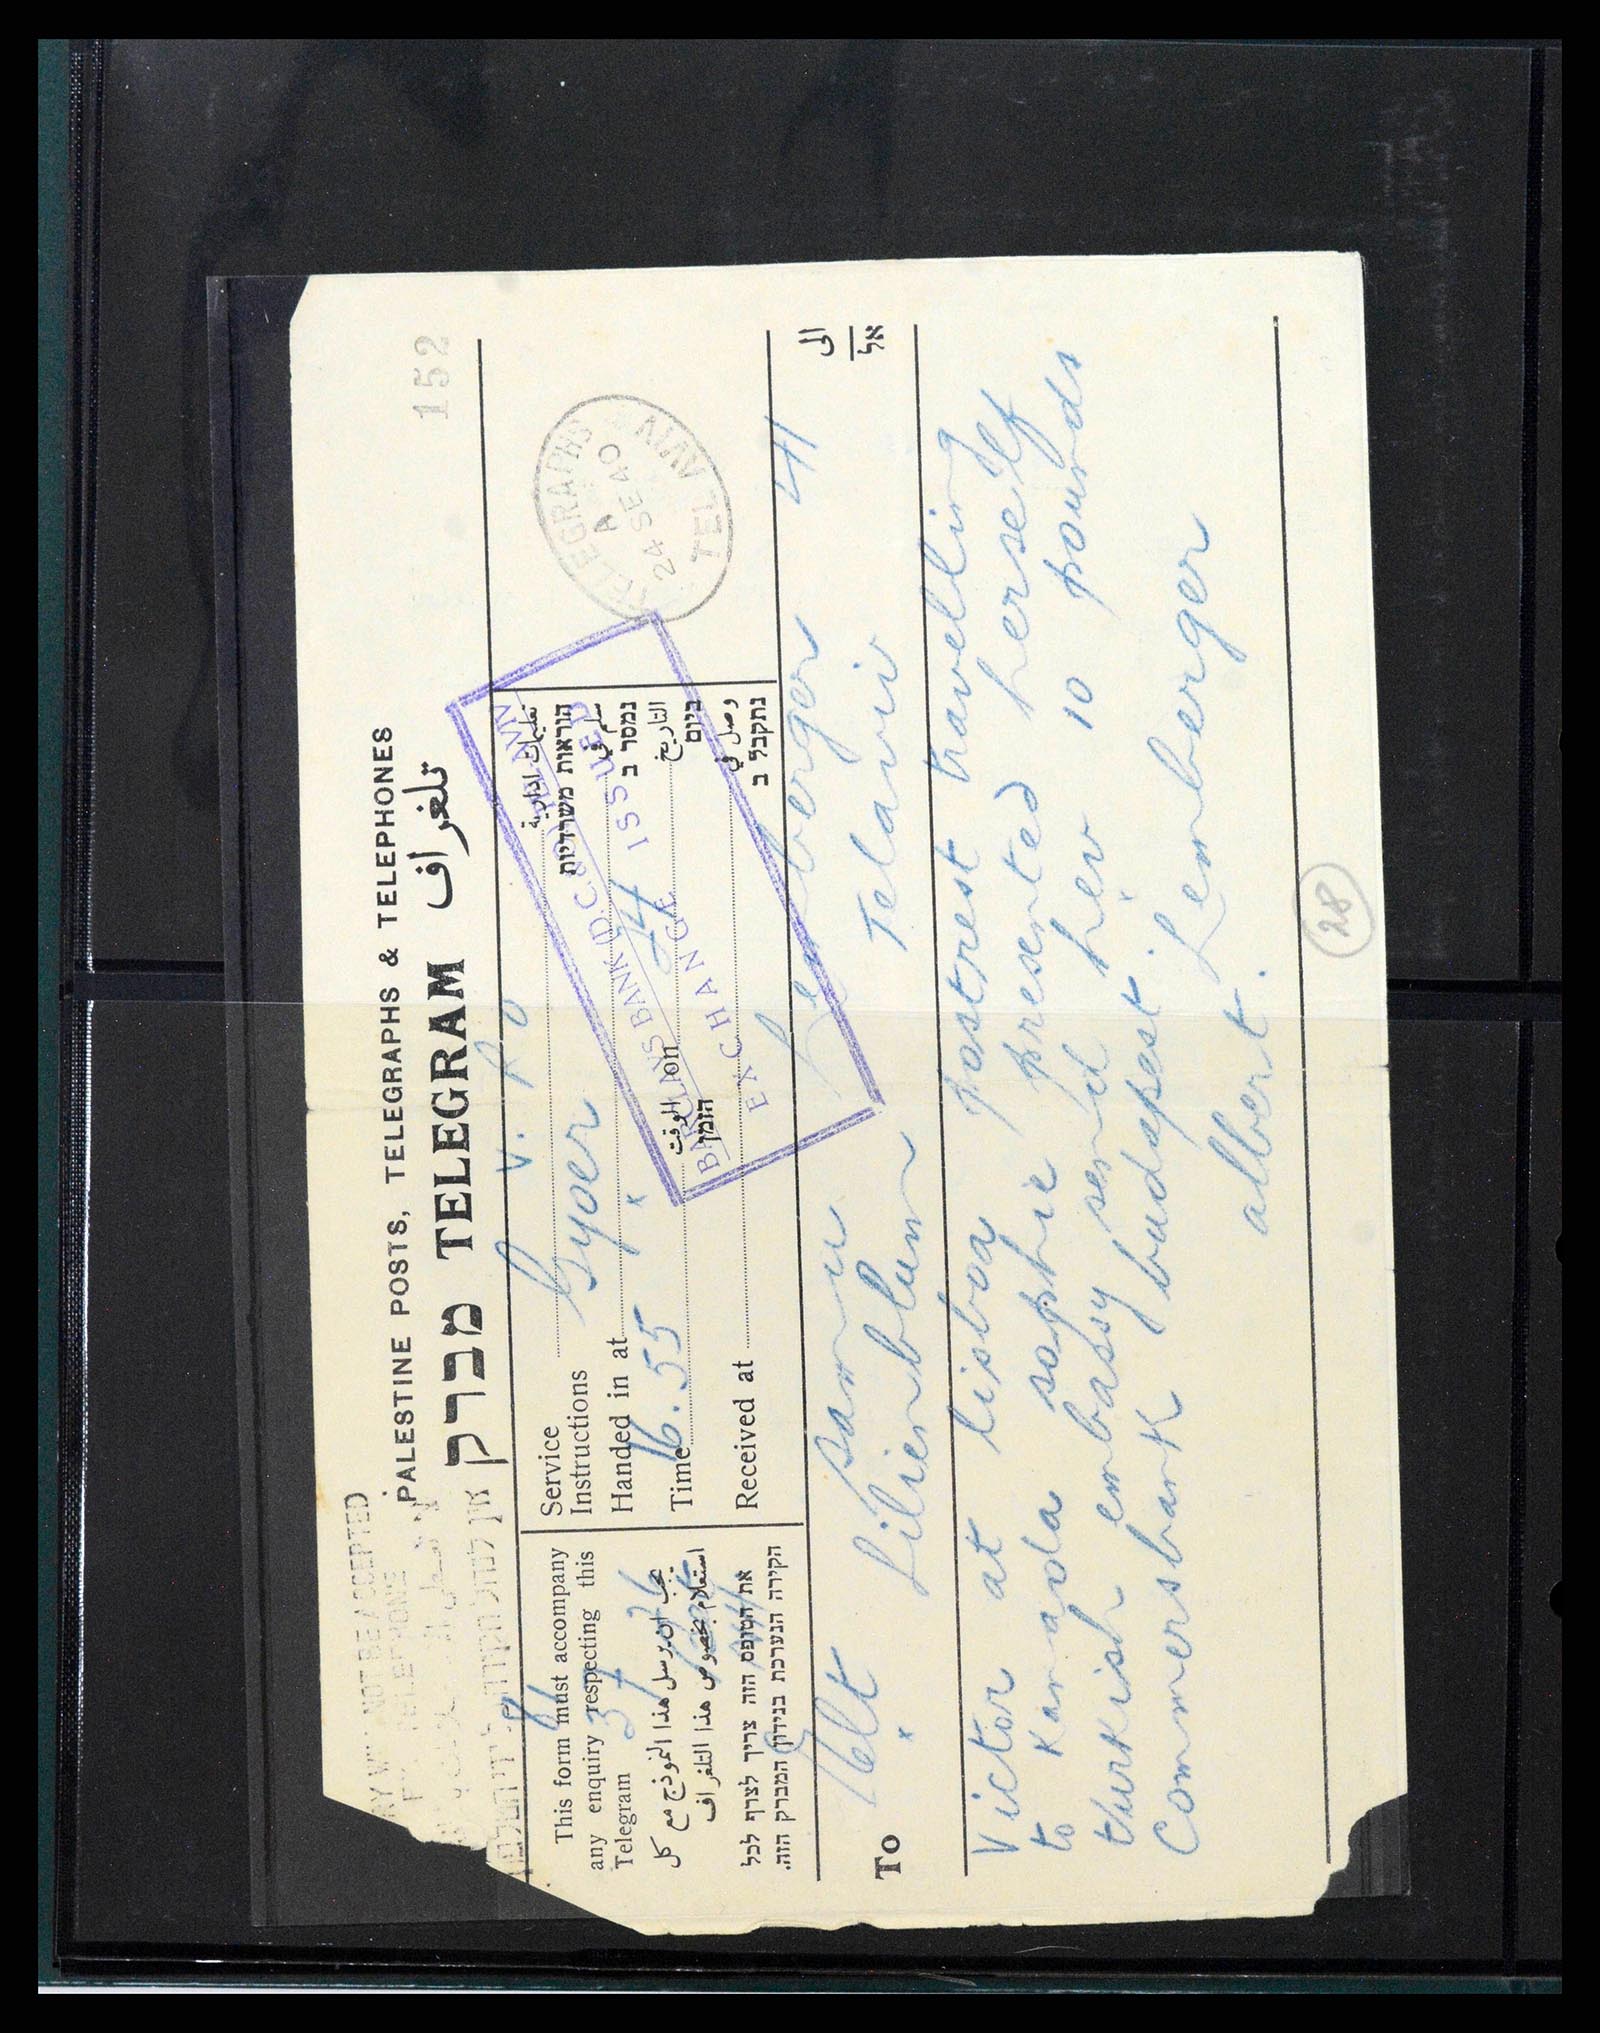 152
RY WI NOT BE ACCEPTED
TELEPHONE
PALESTINE POSTS, TELEGRAPHS & TELEPHONES
מברק TELEGRAM تلغراف
This form must accompany
any enquiry respecting this
Telegram
يجب ان يرسل هذا النموذج مع كل
استعلام بخصوص هذا التلغراف
את הטופס הזה צריך לצרף לכל
חקירה הנערכת בנידון המברק הזה.
Service
Instructions
تعليمات ادارية
הוראות משרדיות
Handed in at Gyoer
سلم في
נמסר ב
Time 16.55 الوقت
הזמן
on 24 التاريخ
ביום
Received at
وصل في
נתקבל ב
BARCLAYS BANK (D.C.&O.) TEL AVIV
EXCHANGE ISSUED
TELEGRAPHS
A
24 SE 40
TEL AVIV
To
الى
אל
Lemberger 41
Lilienblum Telaviv
Victor at lisboa postrest travelling
to Kanada sophie presented herself
thurkish embassy send her 10 pounds
Commersbank budapest. Lemberger
albert.
28